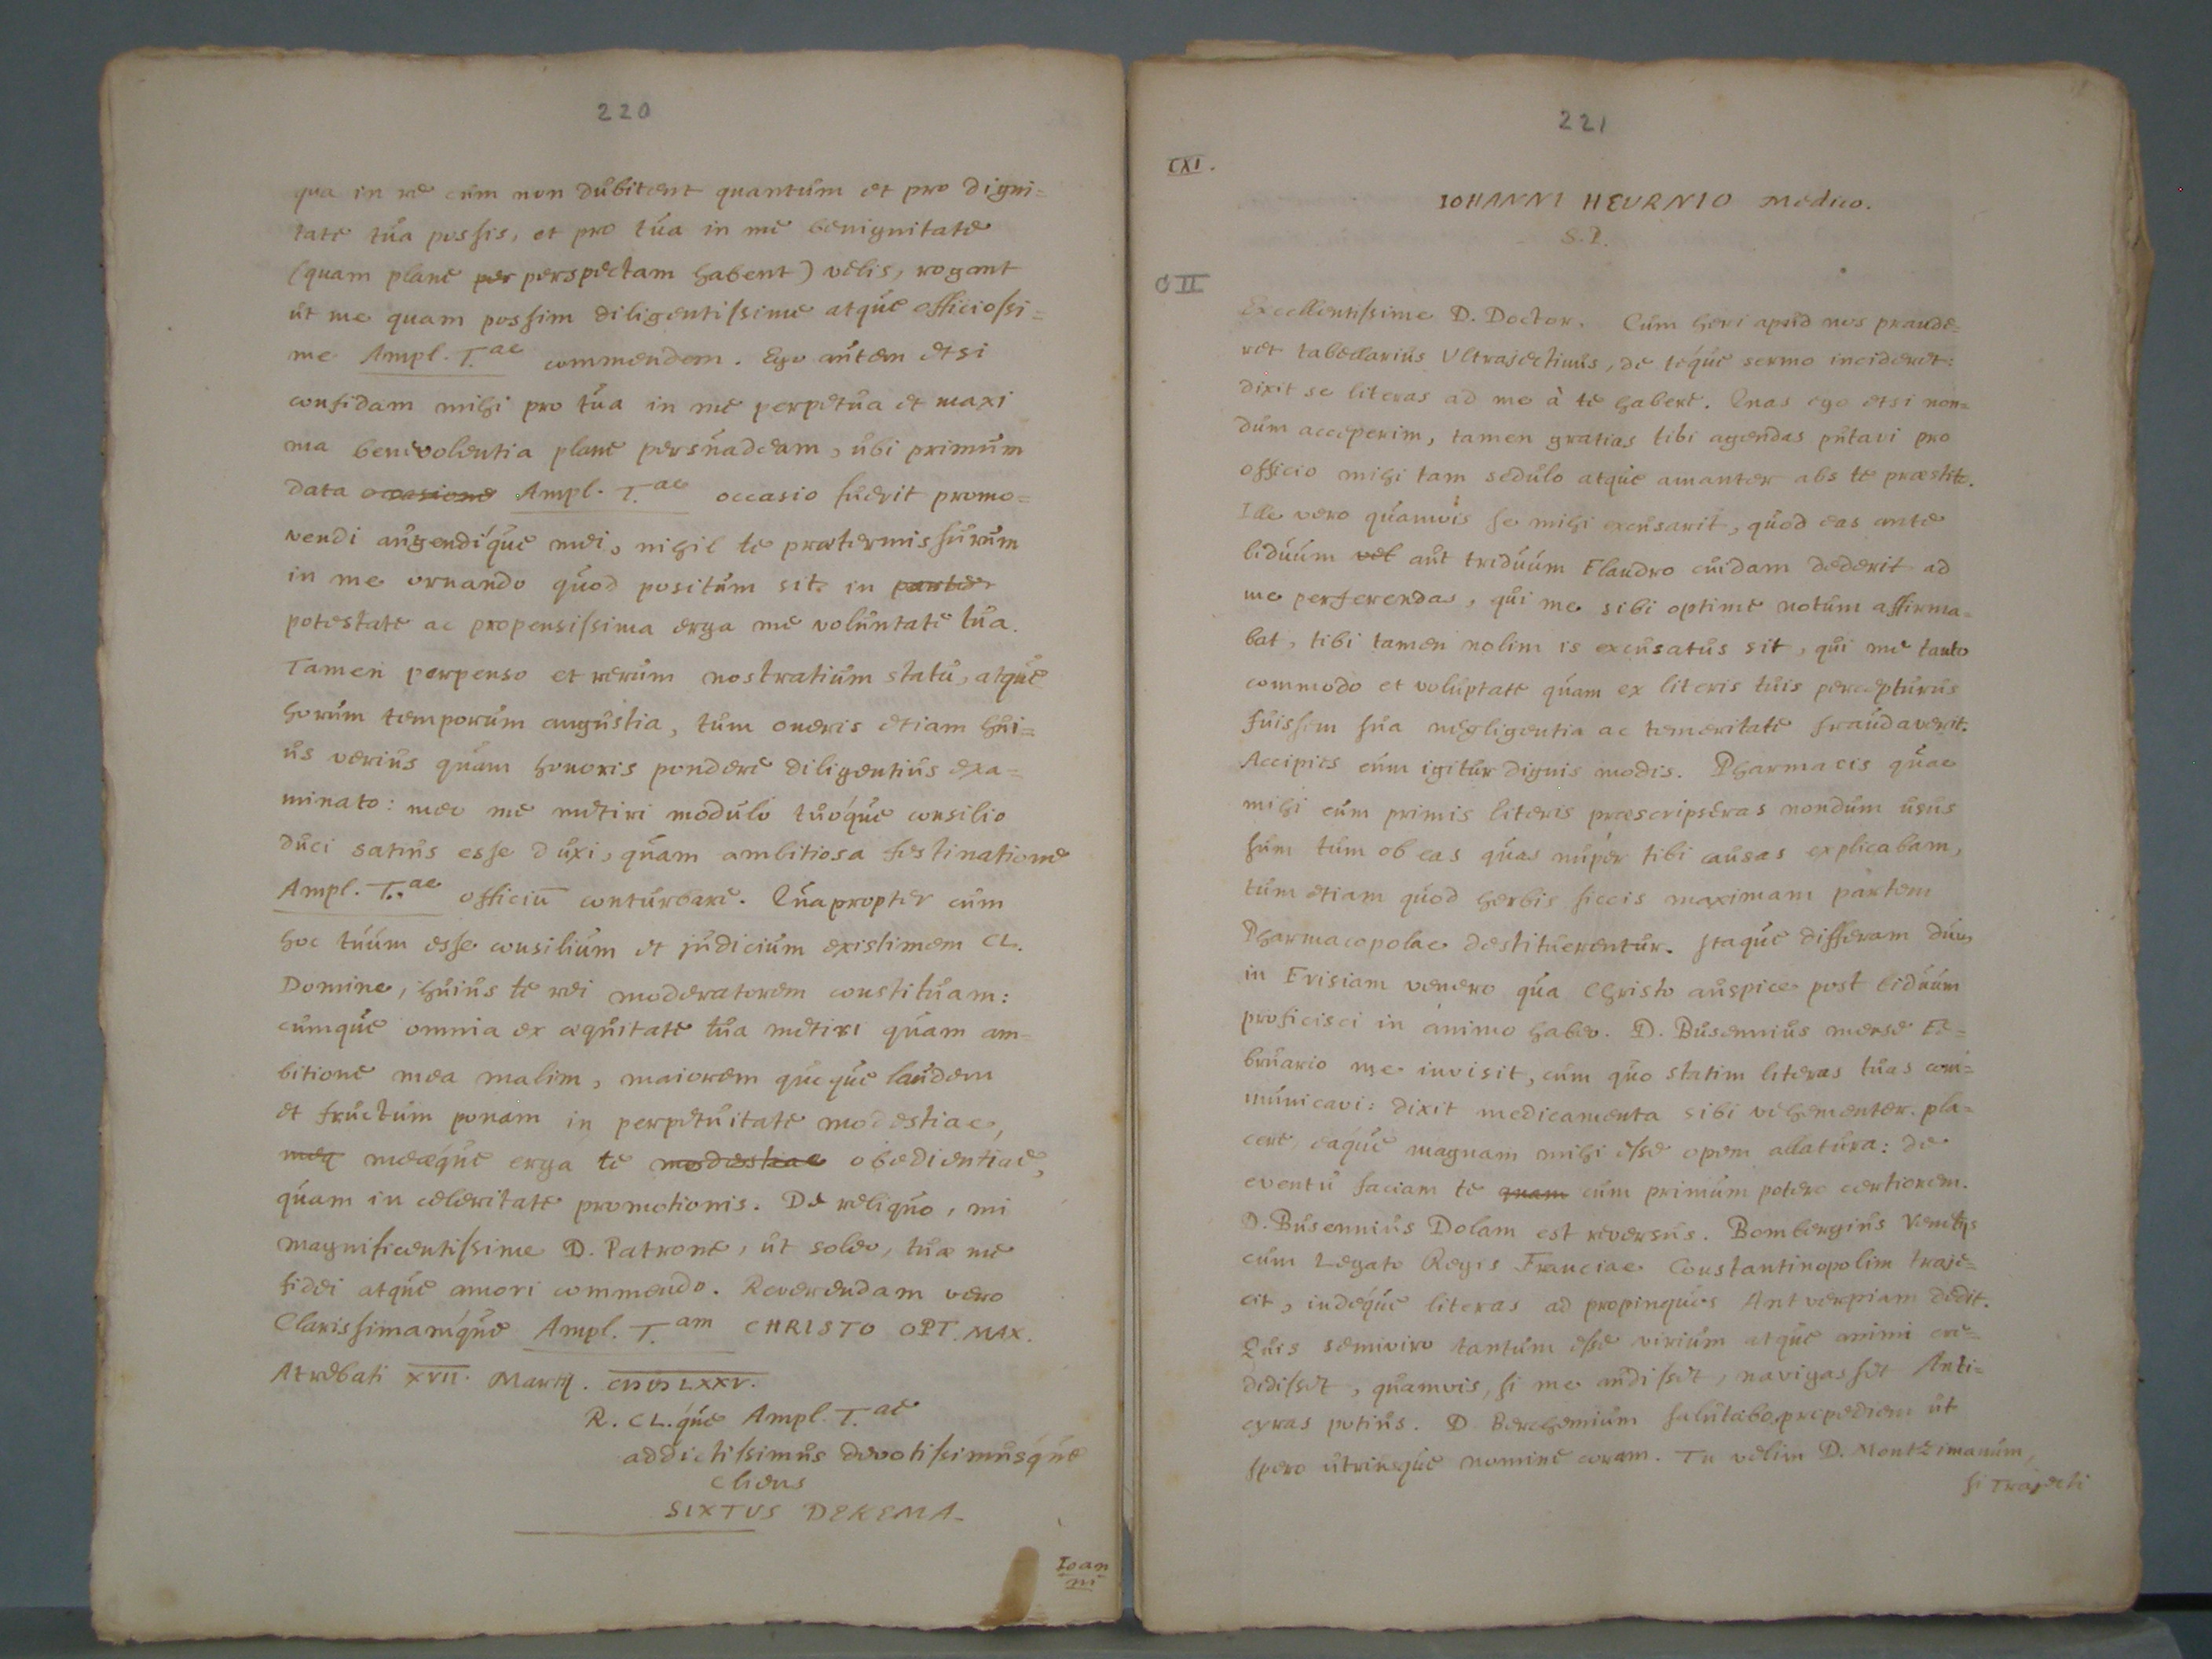 220
qua in re cum non dubitent quantum et pro digni=
tate tua possis, et pro tua in me benignitate
(quam plane per perspectam habent) velis, rogant
ut me quam possim diligentissime atque officiosi=
me Ampl. T.ae commendem. Ego autem etsi
confidam mihi pro tua in me perpetua et maxi
ma benevolentia plane persuadeam, ubi primum
data occasione Ampl. T.ae occasio fuerit promo=
vendi augendique mei, nihil te praetermissurum
in me ornando quod positum sit in
potestate ac propensissima erga me voluntate tua.
Tamen perpenso et rerum nostratium statu, atque
horum temporum angustia, tum oneris etiam hui=
us verius quam honoris pondere diligentius exa=
minato: meo me metiri modulo tuoque consilio
duci satius esse duxi, quam ambitiosa festinatione
Ampl. T.ae officiū conturbare. Quapropter cum
hoc tuum esse consilium et judicium existimem CL.
Domine, huius te rei moderatorem constituam:
cumque omnia ex aequitate tua metiri quam am=
bitione mea malim, maiorem queque laudem
et fructum ponam in perpetuitate modestiae,
meq meaeque erga te modestiae obedientiae,
quam in celeritate promotionis. De reliquo, mi
magnificentissime D. Patrone, ut soleo, tuae me
fidei atque amori commendo. Reverendam vero
Clarissimamque Ampl. T.am CHRISTO OPT. MAX.
Atrebati XVII. Martij. CIƆIƆLXXV.
R. CL.que Ampl. T.ae
addictissimus devotissimusque
cliens
SIXTUS DEKEMA.
Ioan
ni
221
CXI.
IOHANNI HEURNIO Medico.
S. P.
C II
Excellentissime D. Doctor. Cum heri apud nos prande=
ret tabellarius Ultrajectinus, de teque sermo incideret:
dixit se literas ad me à te habere. Quas ego etsi non=
dum acceperim, tamen gratias tibi agendas putavi pro
officio mihi tam sedulo atque amanter abs te praestito.
Ille vero quamvis se mihi excusarit, quod eas ante
biduum vel aut triduum Flandro cuidam dederit ad
me perferendas, qui me sibi optime notum affirma=
bat, tibi tamen nolim is excusatus sit, qui me tanto
commodo et voluptate quam ex literis tuis percepturus
fuissem sua negligentia ac temeritate fraudaverit.
Accipies eum igitur dignis modis. Pharmacis quae
mihi cum primis literis praescripseras nondum usus
sum tum ob eas quas nuper tibi causas explicabam,
tum etiam quod herbis siccis maximam partem
Pharmacopolae destituerentur. Itaque differam dum
in Frisiam venero qua Christo auspice post biduum
proficisci in animo habeo. D. Busennius mense Fe=
bruario me invisit, cum quo statim literas tuas com=
municavi: dixit medicamenta sibi vehementer pla=
cere, eaque magnam mihi esse opem allatura: de
eventu faciam te quam cum primum potero certiorem.
D. Busennius Dolam est reversus. Bombergius Venetijs
cum Legato Regis Franciae Constantinopolim traje=
cit, indeque literas ad propinquos Antverpiam dedit.
Quis semiviro tantum esse virium atque animi cre=
didisset, quamvis, si me audisset, navigasset Anti=
cyras potius. D. Berchemium salutabo propediem ut
spero utriusque nomine coram. Tu velim D. Montzimanum,
si Trajecti